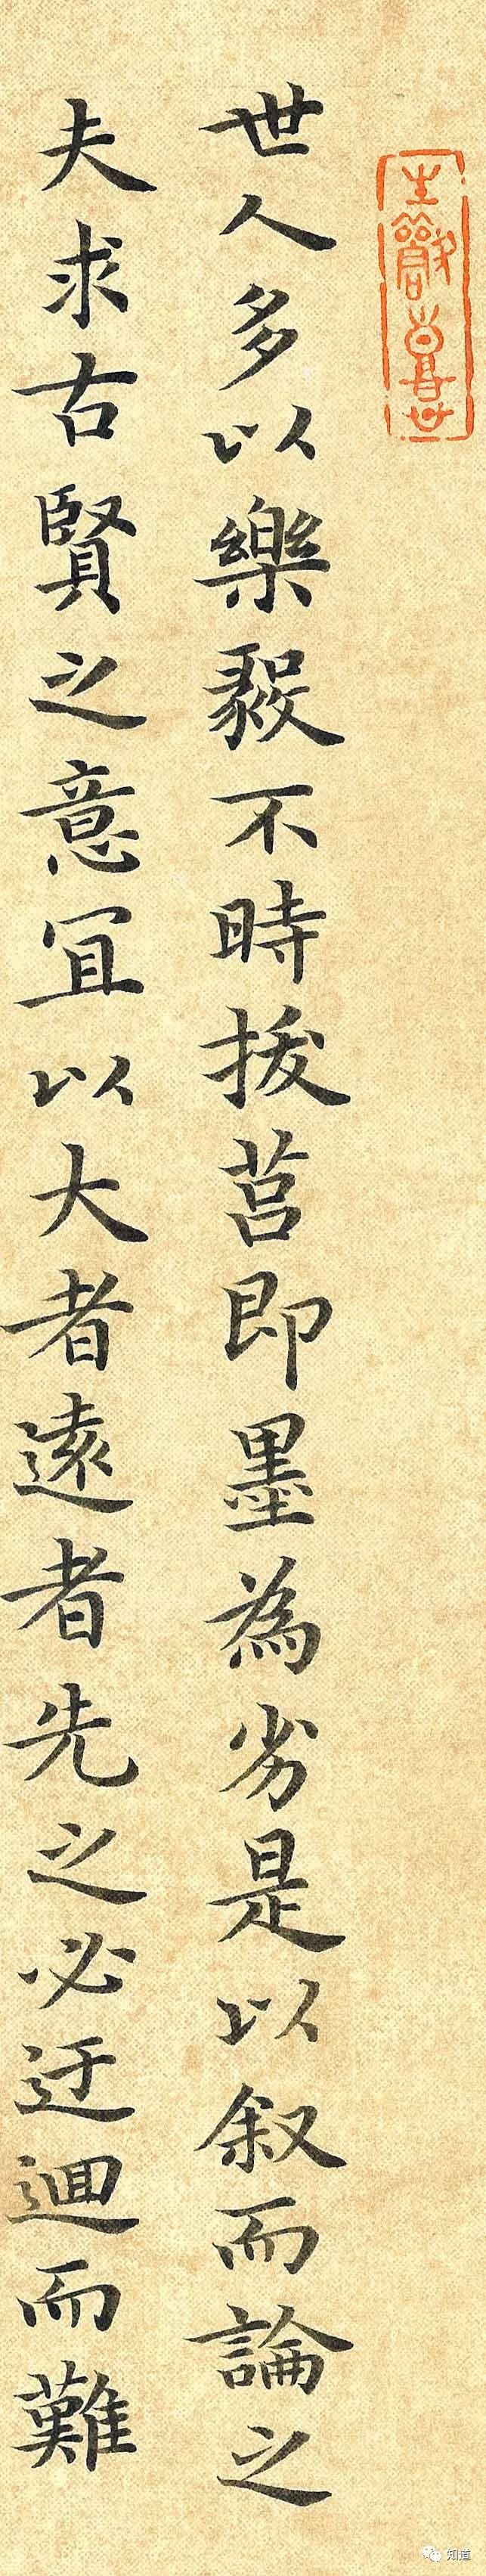 世人多以樂毅不時拔莒即墨為劣是以叙而論之
夫求古賢之意宜以大者遠者先之必迂迴而難
知道